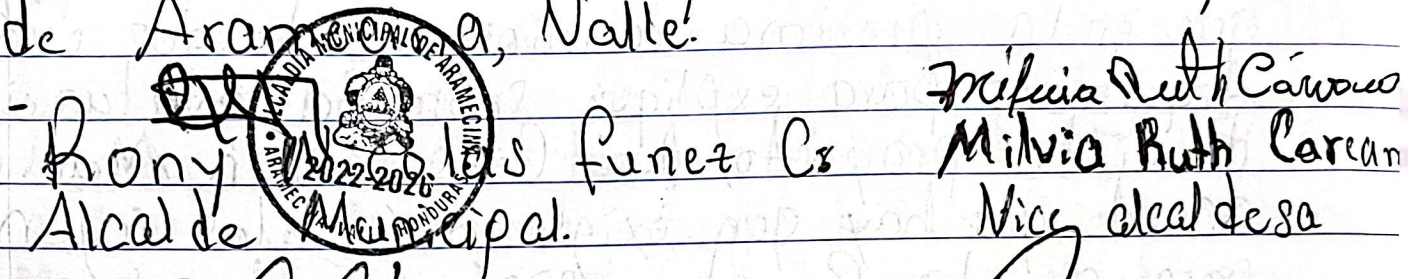 de Aramecina, Valle.
ALCALDIA MUNICIPAL DE ARAMECINA
2022-2026
ARAMECINA, VALLE, HONDURAS
Rony Nicolas funez Cs
Alcalde Municipal.
Ruth Cárcamo
Milvia Ruth Carcam
Vice alcaldesa